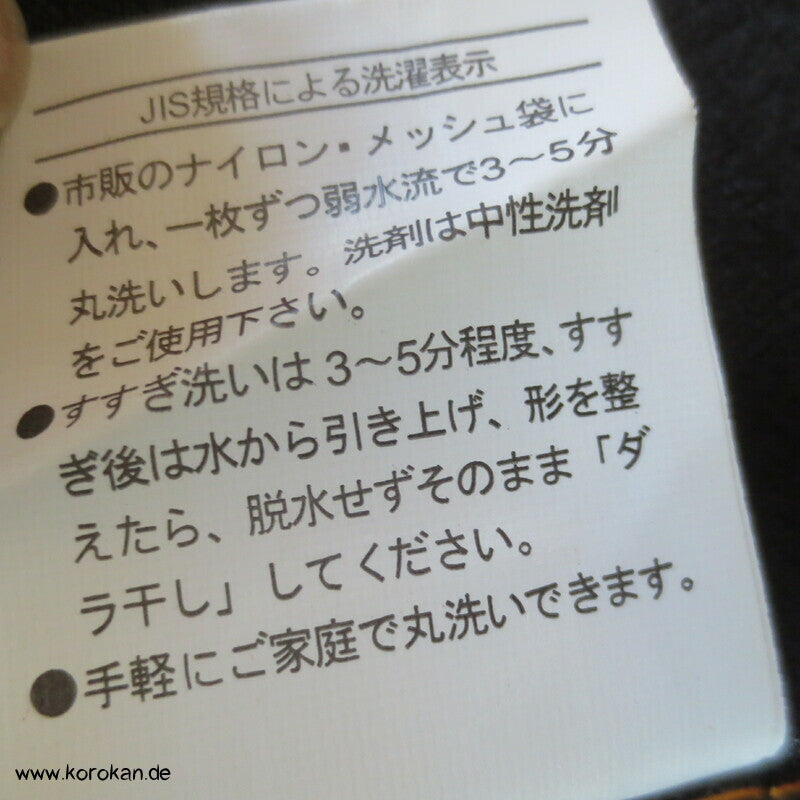 JIS規格による洗濯表示
●市販のナイロン・メッシュ袋に
入れ、一枚ずつ弱水流で3～5分
丸洗いします。洗剤は中性洗剤
をご使用下さい。
●すすぎ洗いは3～5分程度、すす
ぎ後は水から引き上げ、形を整
えたら、脱水せずそのまま「ダ
ラ干し」してください。
●手軽にご家庭で丸洗いできます。
www.korokan.de